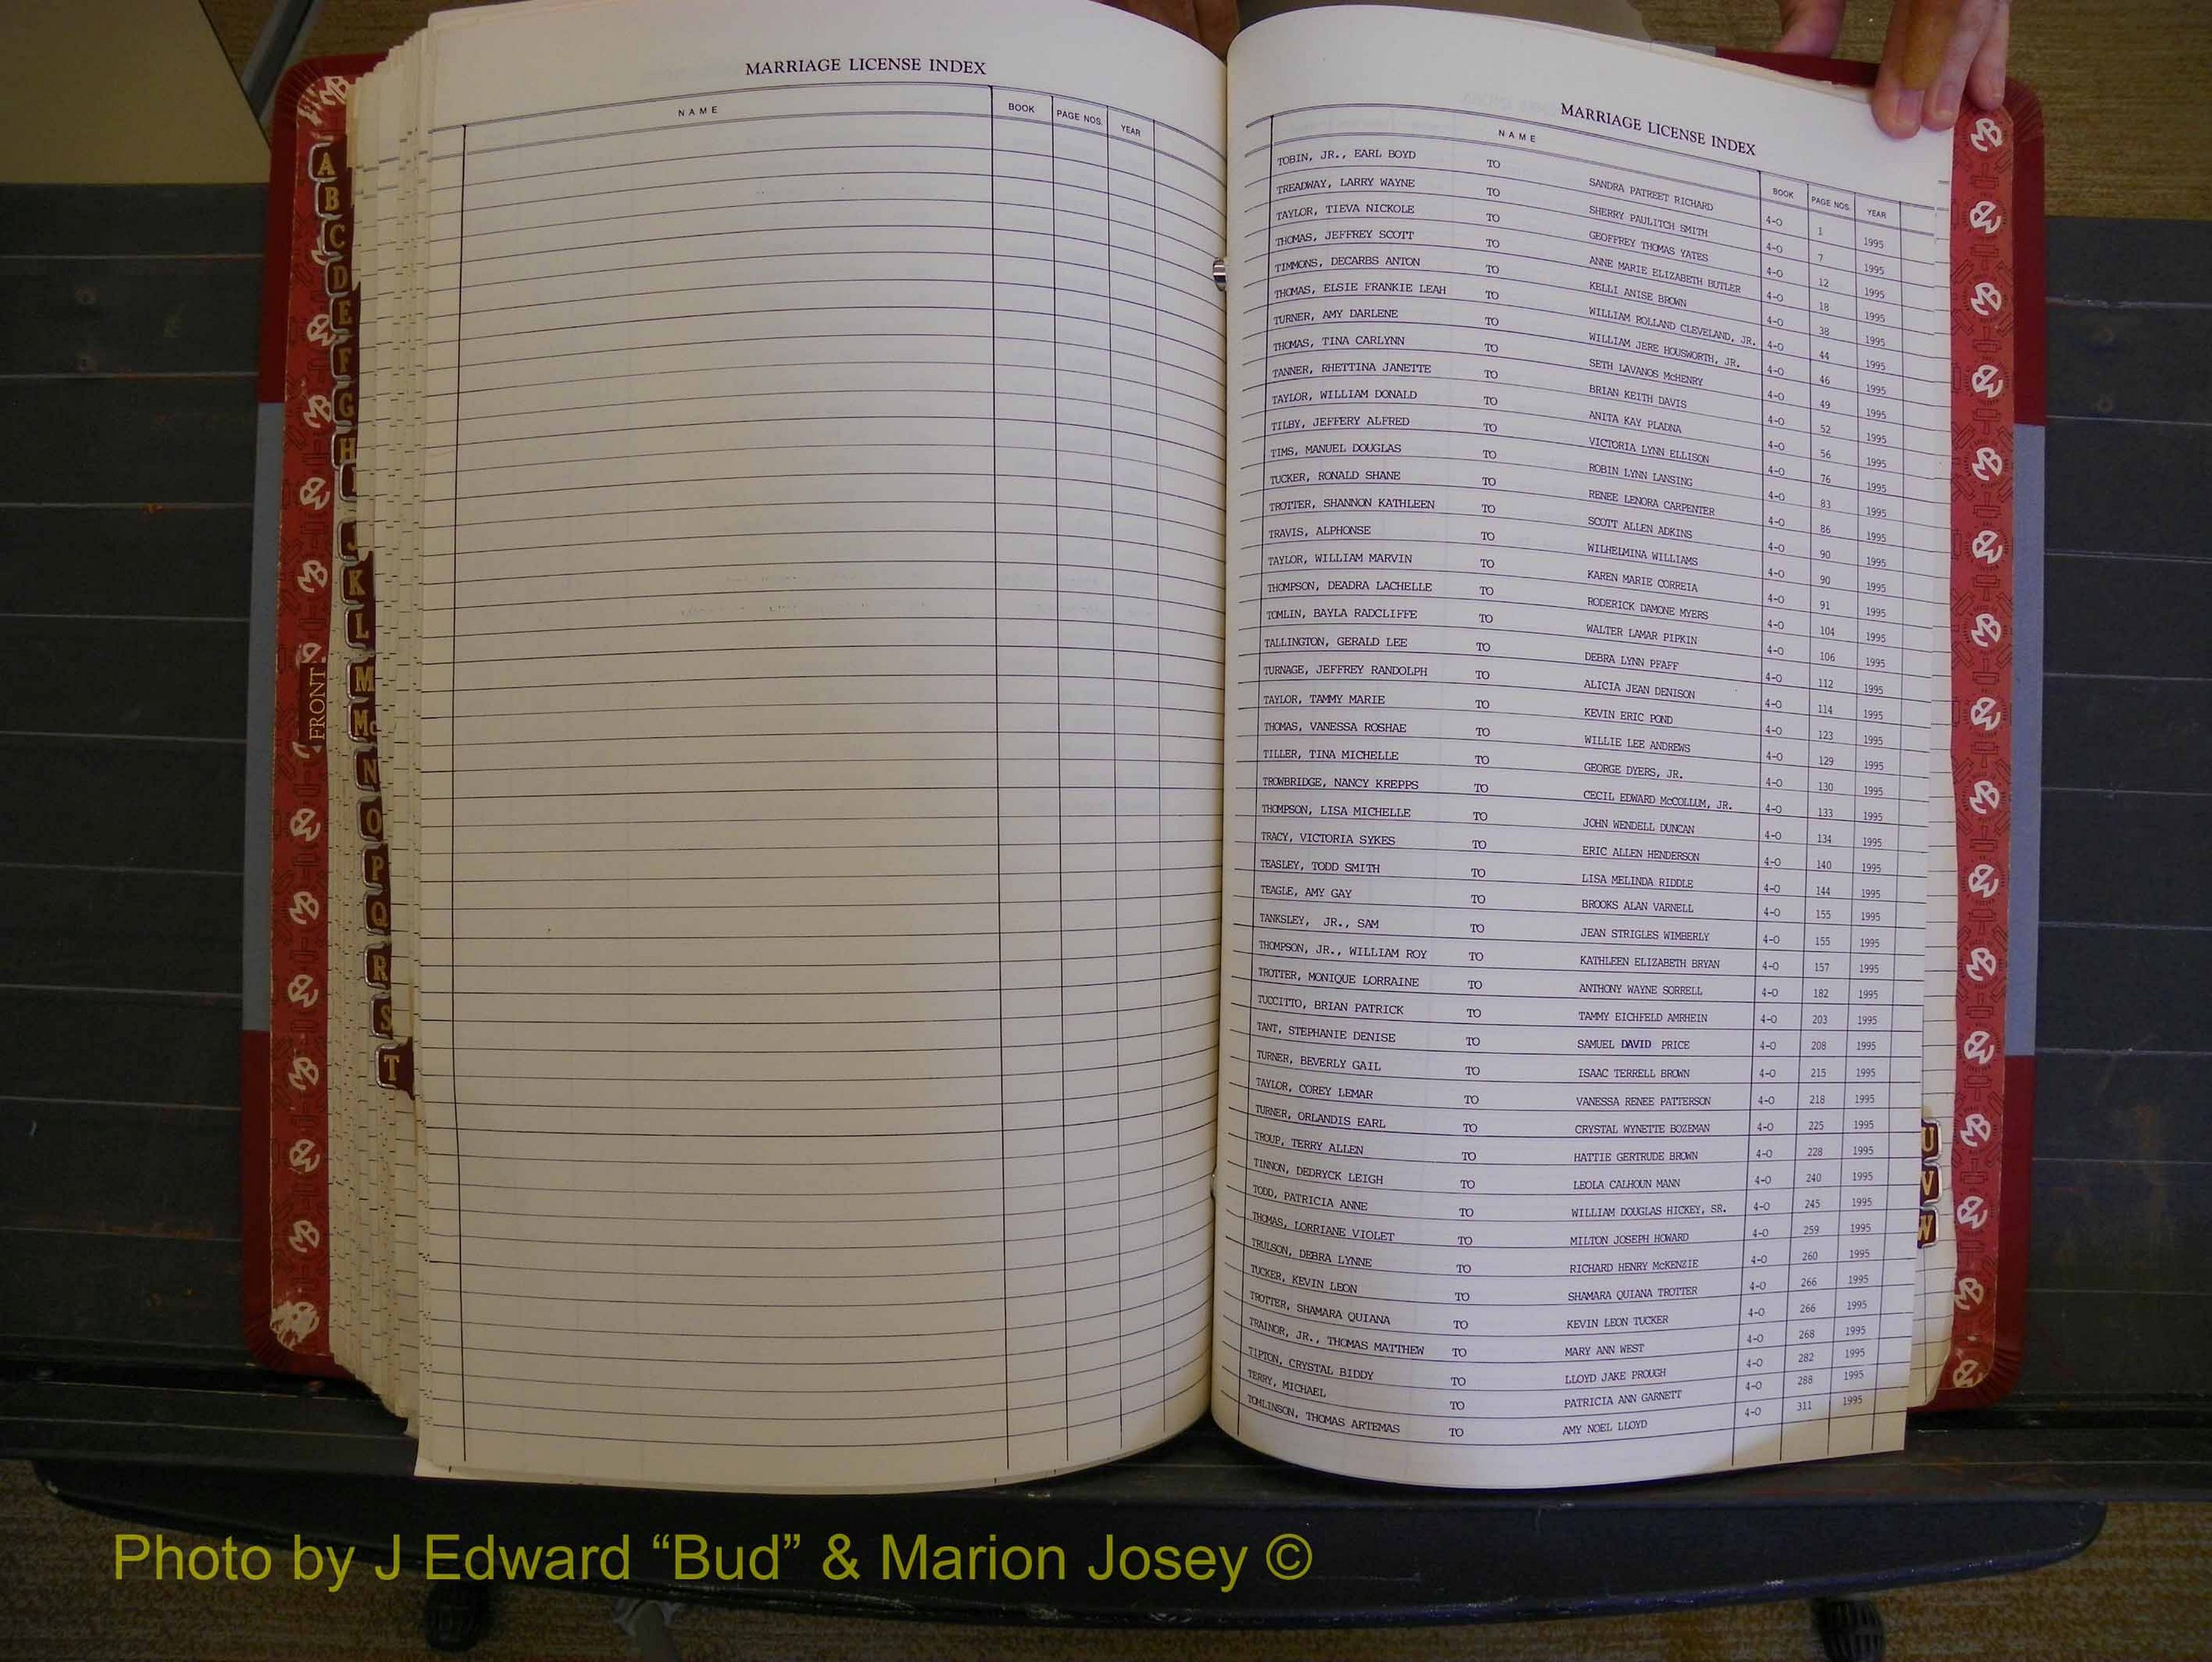 MARRIAGE LICENSE INDEX
NAME BOOK PAGE NOS. YEAR
MARRIAGE LICENSE INDEX
NAME BOOK PAGE NOS. YEAR
TOBIN, JR., EARL BOYD TO SANDRA PATREET RICHARD 4-O 1 1995
TREADWAY, LARRY WAYNE TO SHERRY PAULITCH SMITH 4-O 7 1995
TAYLOR, TIEVA NICKOLE TO GEOFFREY THOMAS YATES 4-O 12 1995
THOMAS, JEFFREY SCOTT TO ANNE MARIE ELIZABETH BUTLER 4-O 18 1995
TIMMONS, DECARBS ANTON TO KELLI ANISE BROWN 4-O 38 1995
THOMAS, ELSIE FRANKIE LEAH TO WILLIAM ROLLAND CLEVELAND, JR. 4-O 44 1995
TURNER, AMY DARLENE TO WILLIAM JERE HOUSWORTH, JR. 4-O 46 1995
THOMAS, TINA CARLYNN TO SETH LAVANOS McHENRY 4-O 49 1995
TANNER, RHETTINA JANETTE TO BRIAN KEITH DAVIS 4-O 52 1995
TAYLOR, WILLIAM DONALD TO ANITA KAY PLADNA 4-O 56 1995
TILBY, JEFFERY ALFRED TO VICTORIA LYNN ELLISON 4-O 76 1995
TIMS, MANUEL DOUGLAS TO ROBIN LYNN LANSING 4-O 83 1995
TUCKER, RONALD SHANE TO RENEE LENORA CARPENTER 4-O 86 1995
TROTTER, SHANNON KATHLEEN TO SCOTT ALLEN ADKINS 4-O 90 1995
TRAVIS, ALPHONSE TO WILHELMINA WILLIAMS 4-O 90 1995
TAYLOR, WILLIAM MARVIN TO KAREN MARIE CORREIA 4-O 91 1995
THOMPSON, DEADRA LACHELLE TO RODERICK DAMONE MYERS 4-O 104 1995
TOMLIN, BAYLA RADCLIFFE TO WALTER LAMAR PIPKIN 4-O 106 1995
TALLINGTON, GERALD LEE TO DEBRA LYNN PFAFF 4-O 112 1995
TURNAGE, JEFFREY RANDOLPH TO ALICIA JEAN DENISON 4-O 114 1995
TAYLOR, TAMMY MARIE TO KEVIN ERIC POND 4-O 123 1995
THOMAS, VANESSA ROSHAE TO WILLIE LEE ANDREWS 4-O 129 1995
TILLER, TINA MICHELLE TO GEORGE DYERS, JR. 4-O 130 1995
TROWBRIDGE, NANCY KREPPS TO CECIL EDWARD McCOLLUM, JR. 4-O 133 1995
THOMPSON, LISA MICHELLE TO JOHN WENDELL DUNCAN 4-O 134 1995
TRACY, VICTORIA SYKES TO ERIC ALLEN HENDERSON 4-O 140 1995
TEASLEY, TODD SMITH TO LISA MELINDA RIDDLE 4-O 144 1995
TEAGLE, AMY GAY TO BROOKS ALAN VARNELL 4-O 155 1995
TANKSLEY, JR., SAM TO JEAN STRIGLES WIMBERLY 4-O 155 1995
THOMPSON, JR., WILLIAM ROY TO KATHLEEN ELIZABETH BRYAN 4-O 157 1995
TROTTER, MONIQUE LORRAINE TO ANTHONY WAYNE SORRELL 4-O 182 1995
TUCCITTO, BRIAN PATRICK TO TAMMY EICHFELD AMRHEIN 4-O 203 1995
TANT, STEPHANIE DENISE TO SAMUEL DAVID PRICE 4-O 208 1995
TURNER, BEVERLY GAIL TO ISAAC TERRELL BROWN 4-O 215 1995
TAYLOR, COREY LEMAR TO VANESSA RENEE PATTERSON 4-O 218 1995
TURNER, ORLANDIS EARL TO CRYSTAL WYNETTE BOZEMAN 4-O 225 1995
TROUP, TERRY ALLEN TO HATTIE GERTRUDE BROWN 4-O 228 1995
TINNON, DEDRYCK LEIGH TO LEOLA CALHOUN MANN 4-O 240 1995
TODD, PATRICIA ANNE TO WILLIAM DOUGLAS HICKEY, SR. 4-O 245 1995
THOMAS, LORRIANE VIOLET TO MILTON JOSEPH HOWARD 4-O 259 1995
TRULSON, DEBRA LYNNE TO RICHARD HENRY McKENZIE 4-O 260 1995
TUCKER, KEVIN LEON TO SHAMARA QUIANA TROTTER 4-O 266 1995
TROTTER, SHAMARA QUIANA TO KEVIN LEON TUCKER 4-O 266 1995
TRAINOR, JR., THOMAS MATTHEW TO MARY ANN WEST 4-O 268 1995
TIPTON, CRYSTAL BIDDY TO LLOYD JAKE PROUGH 4-O 282 1995
TERRY, MICHAEL TO PATRICIA ANN GARNETT 4-O 288 1995
TOMLINSON, THOMAS ARTEMAS TO AMY NOEL LLOYD 4-O 311 1995
A
B
C
D
E
F
G
H
J
K
L
M
Mc
N
O
P
Q
R
S
T
U
V
W
FRONT
Photo by J Edward “Bud” & Marion Josey ©